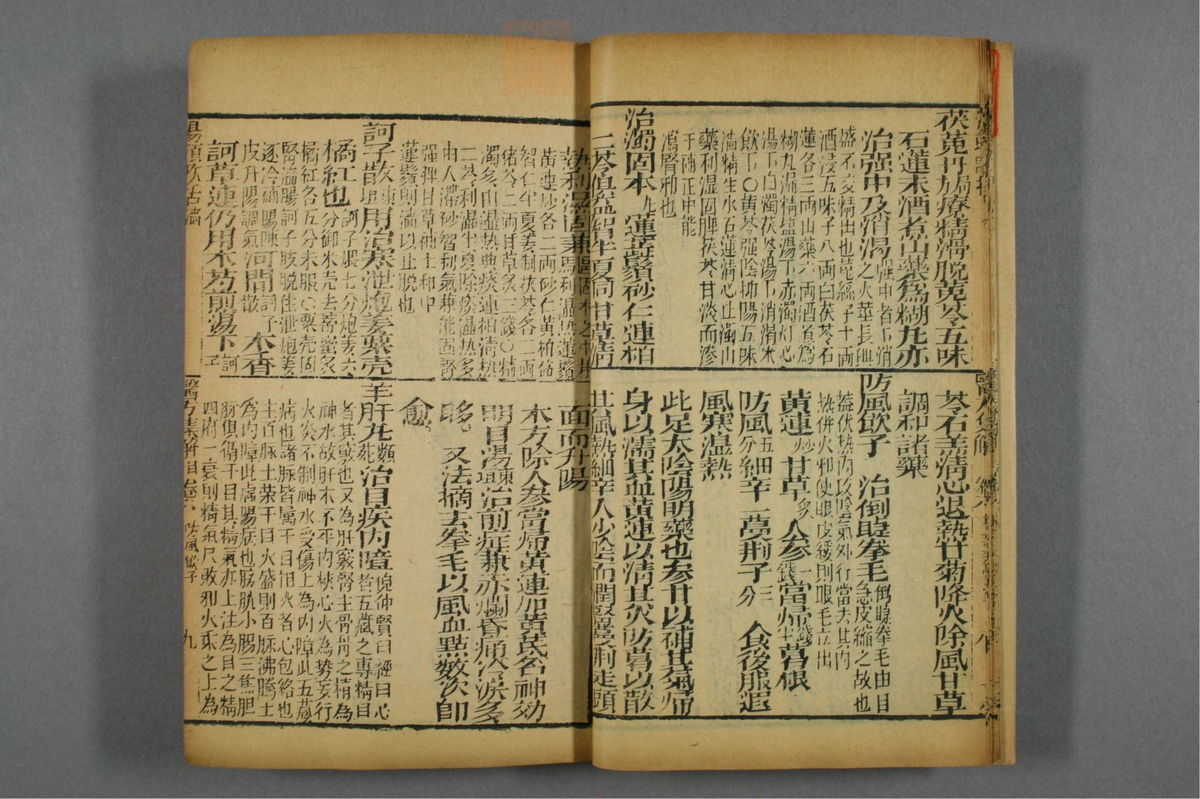 茯菟丹 療精滑脫菟苓五味
石蓮末酒煮山藥為糊丸亦
治强中及消渴 强中者下消之火莖長興
盛不交精出也菟絲子十兩
酒浸五味子八兩白茯苓石
蓮各三兩山藥六兩酒煮為
糊丸漏精塩湯下赤濁灯心
湯下白濁茯苓湯下消渴米
飲下〇菟絲强陰補陽五味
澁精生水石蓮清心止濁山
藥利濕固脾茯苓甘淡而滲
于補正中能
瀉腎邪也
治濁固本丸 蓮蕊鬚砂仁連柏
二苓俱益智半夏同甘草清
苓石羔清心退熱甘菊降火除風甘草
調和諸藥
防風飲子 治倒睫拳毛 倒睫拳毛由目急皮縮之故也
蓋伏熱內攻陰氣外行當去其內
熱併火邪使眼皮緩則眼毛立出
黃連炒 甘草炙 人參一錢 當歸七分半 葛根
防風五分 細辛 蔓荊子三分 食後服避
風寒濕熱
此足太陰陽明藥也參甘以補其氣歸
身以濡其血黃連以清其火防葛以散
其風熱細辛入少陰而潤腎蔓荊走頭
熱利濕固兼驅 固本之中兼利濕熱蓮鬚
黃連炒各二兩砂仁黃柏益
智仁半夏姜制茯苓各一兩
猪苓二兩甘草炙三錢〇精
濁多由濕熱與痰連柏清熱
二苓利濕半夏除痰濕熱多
由人滯砂智利氣兼能固腎
强脾甘草補土和中
蓮鬚則澁以止脫也
訶子散 東垣 用治寒泄炮姜粟壳
橘紅也 訶子煨七分炮姜六
分御米壳去蒂蜜炙
橘紅各五分末服〇粟壳固
腎澁腸訶子收脫住泄炮姜
逐冷補陽陳
皮升陽調氣 河間訶子散 木香
訶草連仍用术芍煎湯下 訶子
面而升陽
本方除人參當歸黃連加黃芪名神効
明目湯 東垣 治前症兼赤爛昏痛冷淚多
眵 又法摘去拳毛以風血點數次即
愈
羊肝丸 類苑 治目疾內障 倪仲賢曰經曰心者五臟之專精目
者其竅也又為肝竅腎主骨骨之精為
神水故肝木不平內挾心火為勢妄行
火炎不制神水受傷上為內障此五臟
病也諸脉皆屬于目相火者心包絡也
主百脉上榮于目火盛則百脉沸騰上
為內障此虛陽病也膀胱小腸三焦胆
脉俱循于目其精氣亦上注為目之精
四府一衰則精氣尽敗邪火乘之上為
湯頭歌括
醫方集解 目 卷六 防風飲子 九